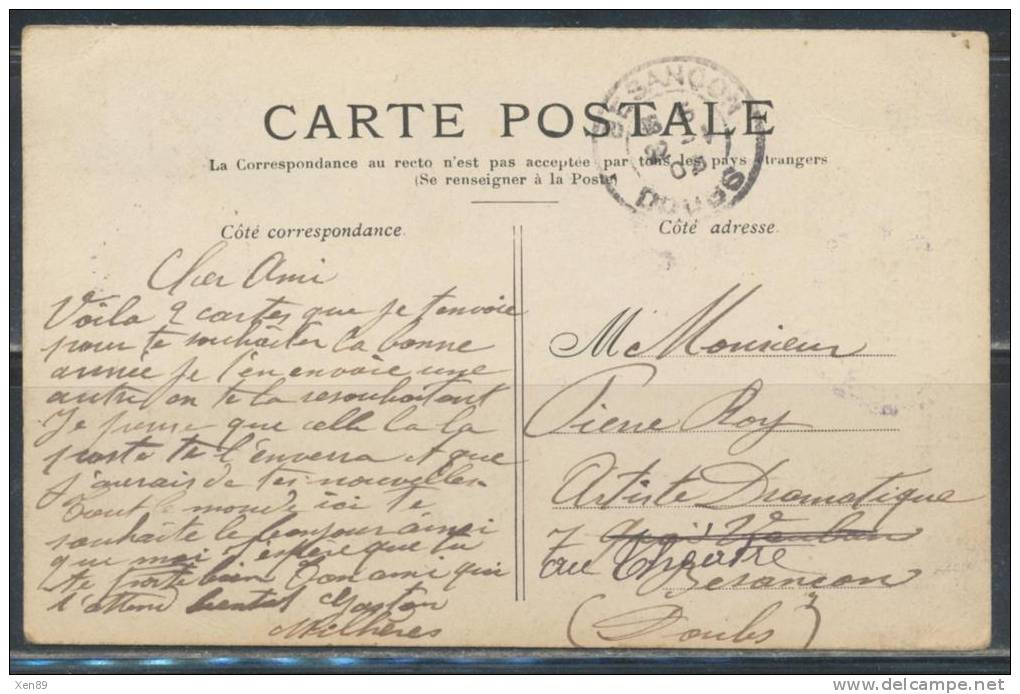 CARTE POSTALE
La Correspondance au recto n'est pas acceptée par tous les pays étrangers
(Se renseigner à la Poste)
BESANÇON
DOUBS
Côté correspondance.
Cher Ami
Voila 2 cartes que je t'envoie
pour te souhaiter la bonne
année je t'en envoie une
autre en te la resouhaitant
Je pense que celle la la
poste te l'enverra et que
j'aurais de tes nouvelles
Tout le monde ici te
souhaite le bonjour ainsi
que moi j'espère que tu
te porte bien Ton ami qui
t'attend bientot Gaston
Côté adresse.
M Monsieur
Pierre Roy
Artiste Dramatique
7 quai Vauban
au Théatre
Besançon
(Doubs)
Xen89
delcampe.net